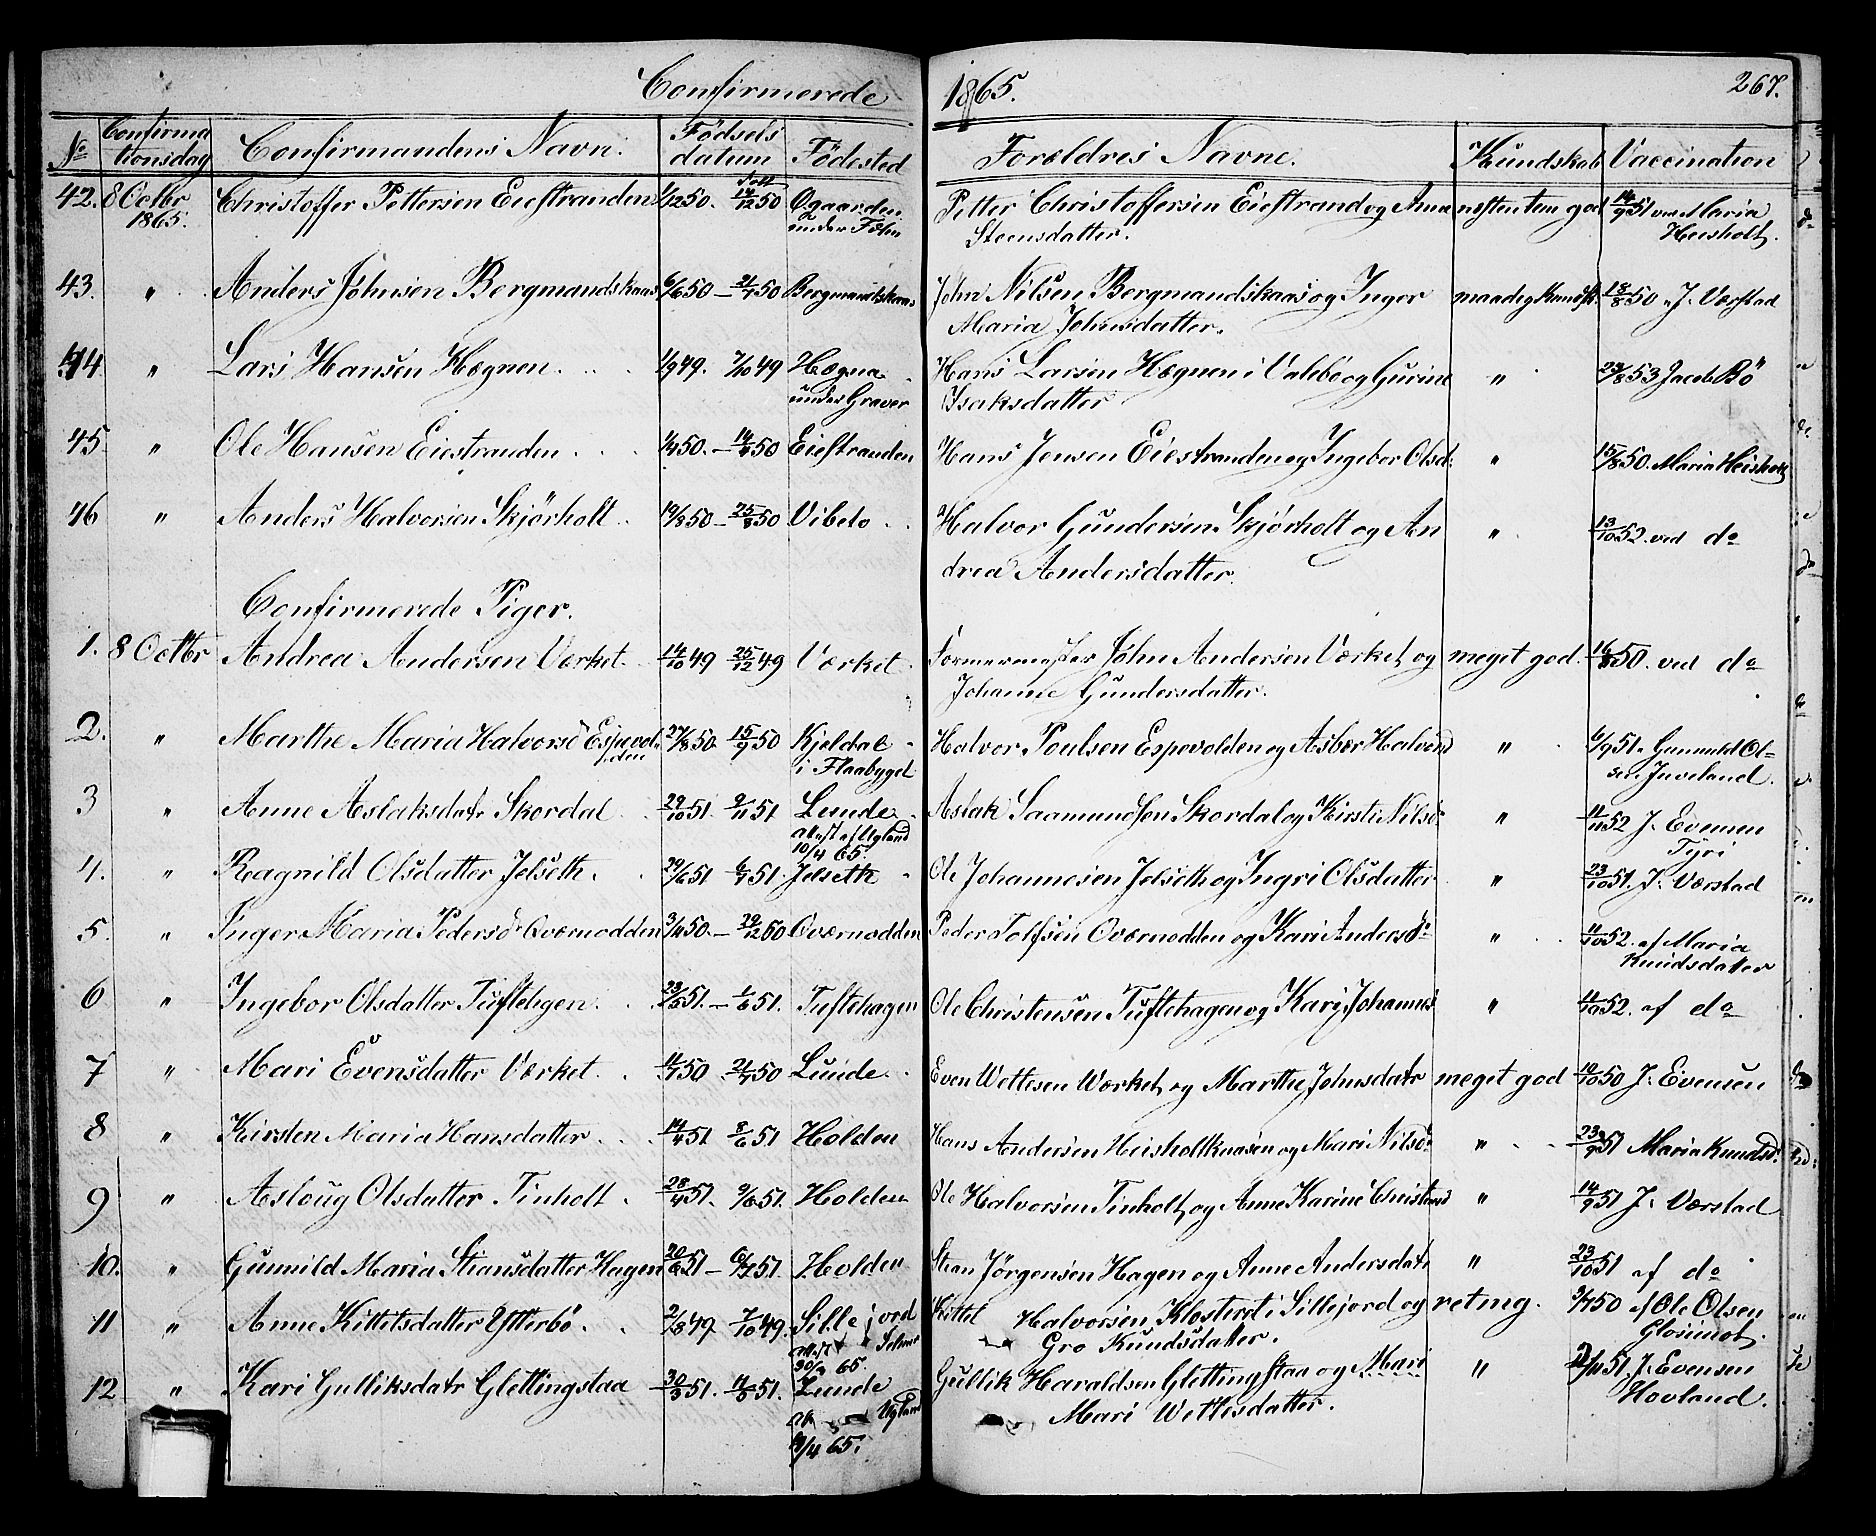 Confirmerede 1865. 267.
No Confirmationsdag Confirmandens Navn. Fødselsdatum Fødested Forældres Navne. Kundskab Vaccination
42. 8 Octbr 1865. Christoffer Pettersen Eiestranden 50. 50 Ogaarden under
Petter Christoffersen Eiestrand og Anne Steensdatter. næsten tem god 14/9 51 Maria Heisholt.
43. " Anders Johnsen Bergmandskaas 6/6 50 – 21/7 50 Bergmandskaas
John Nilsen Bergmandskaas og Inger Maria Johnsdatter. maadeg Kundsk. 18/8 50 J. Værstad
44 " Lars Hansen Hægnen 1/9 49. 7/10 49 Hægna under Graver
Hans Larsen Hægnen i Valebø og Gurine Isaksdatter " 53 Jacob Bö
45. " Ole Hansen Eiestranden 50. – 50 Eiestranden
Hans Jensen Eiestranden og Ingebor Olsd: " 15/8 50. Maria Heisholt
46 " Anders Halvorsen Skjörholt 19/8 50 – 25/8 50 Vibeto
Halvor Gundersen Skjörholt og Andrea Andersdatter. " 13/10 52. ved do
Confirmerede Piger.
1. 8 Octbr Andrea Andersen Værket. 14/10 49 25/12 49 Værket
Formermester John Andersen Værket og Johanne Gundersdatter. meget god. 50. ved do
2. " Marthe Maria Halvorsd Espevolden 27/8 50. 15/9 50 Kjeldal i Flaabygd
Halvor Poulsen Espevolden og Asbør Halvorsd " 6/9 51 Gunnuld Olsen Juveland.
3 " Anne Aslaksdatr Skordal 29/10 51. 9/11 51 Lunde attest af Ugland 10/4 65.
Aslak Saamundsen Skordal og Kirsti Nilsd: " 11/11 52 J. Evensen Tyri
4. " Ragnild Olsdatter Jelseth. 29/6 51 6/7 51. Jelseth
Ole Johannesen Jelseth og Ingri Olsdatter " 23/10 51. J. Værstad
5. " Inger Maria Pedersd Oværnodden 3/11 50. – 29/12 50 Oværnodden
Peder Tolfsen Oværnodden og Kari Andersd " 11/10 52. af Maria Knudsdatter
6 " Ingebor Olsdatter Tuftehgen. 51. – 1/6 51. Tuftehagen
Ole Christensen Tuftehagen og Kari Johannes " 11/10 52. af do
7 " Mari Evensdatter Værket. 50 21/7 50 Lunde
Even Wettesen Værket og Marthe Johnsdatr meget god 10/10 50 J. Evensen
8 " Kirsten Maria Hansdatter 14/4 51 8/6 51 Holden
Hans Andersen Heisholtkaasen og Mari Nilsd " 23/9 51 Maria Knudsd:
9 " Asloug Olsdatter Tinholt. 28/4 51. 9/6 51. Holden
Ole Halvorsen Tinholt og Anne Karine Christensd " 14/9 51 J. Værstad
10. " Gunnild Maria Stiansdatter Hagen 20/6 51 – 6/7 51. Holden
Stean Jørgensen Hagen og Anne Andersdatr " 23/10 51 af do
11 " Anne Kittilsdatter Ytterbö. 2/8 49 7/10 49. Sillejord 65.
Kittil Halvorsen Klosteret i Sillejord og Gro Knudsdatter. ret mg. 9/7 50 af Ole Olsen Glosimot.
12 " Kari Gulliksdatr Glettingstaa 51. 51. Lunde Ugland 10/4 65.
Gullik Haraldsen Glettingstaa og Mari Mari Wettesdatter. " 51. J. Evensen Hovland.